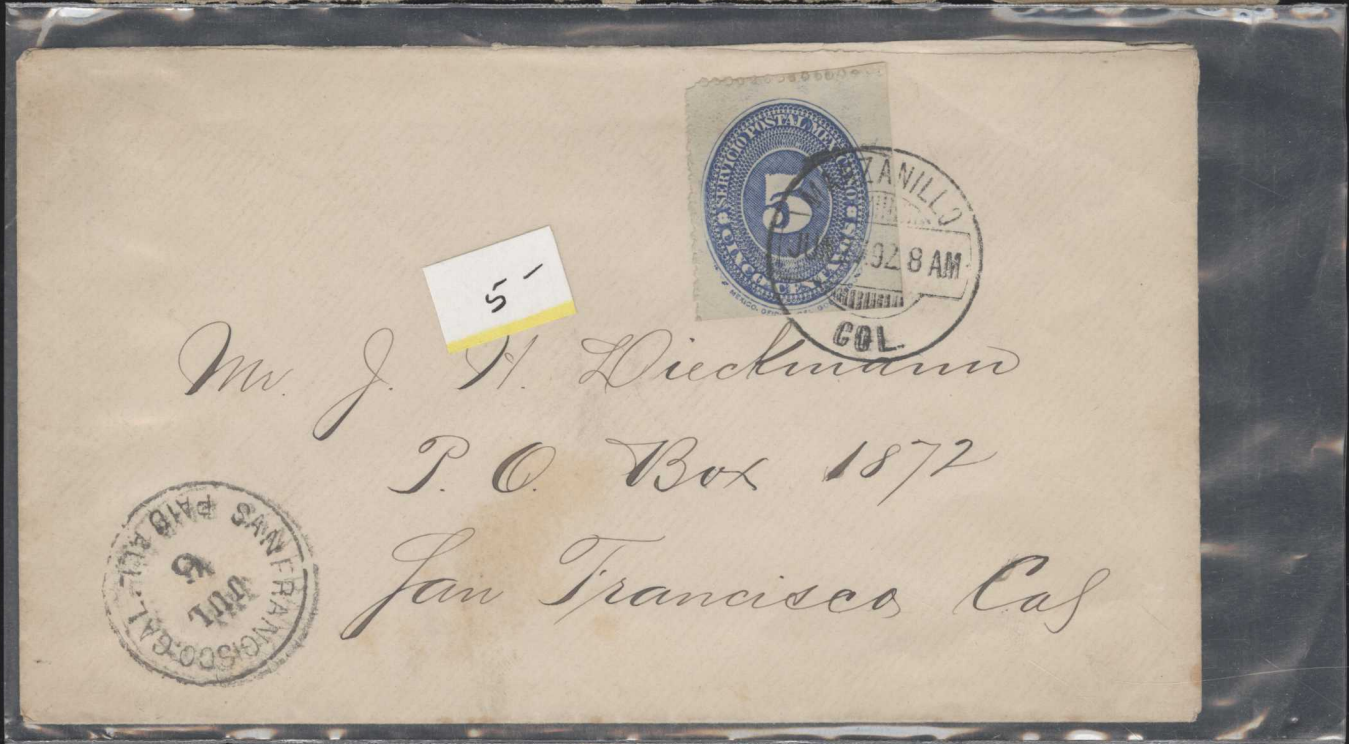 SERVICIO POSTAL MEXICANO
5
CINCO CENTAVOS
MANZANILLO
92 8 AM
COL.
5 -
Mr. J. H. Dieckmann
P. O. Box 1872
San Francisco Cal
SAN FRANCISCO. CAL.
PAID ALL
JUL